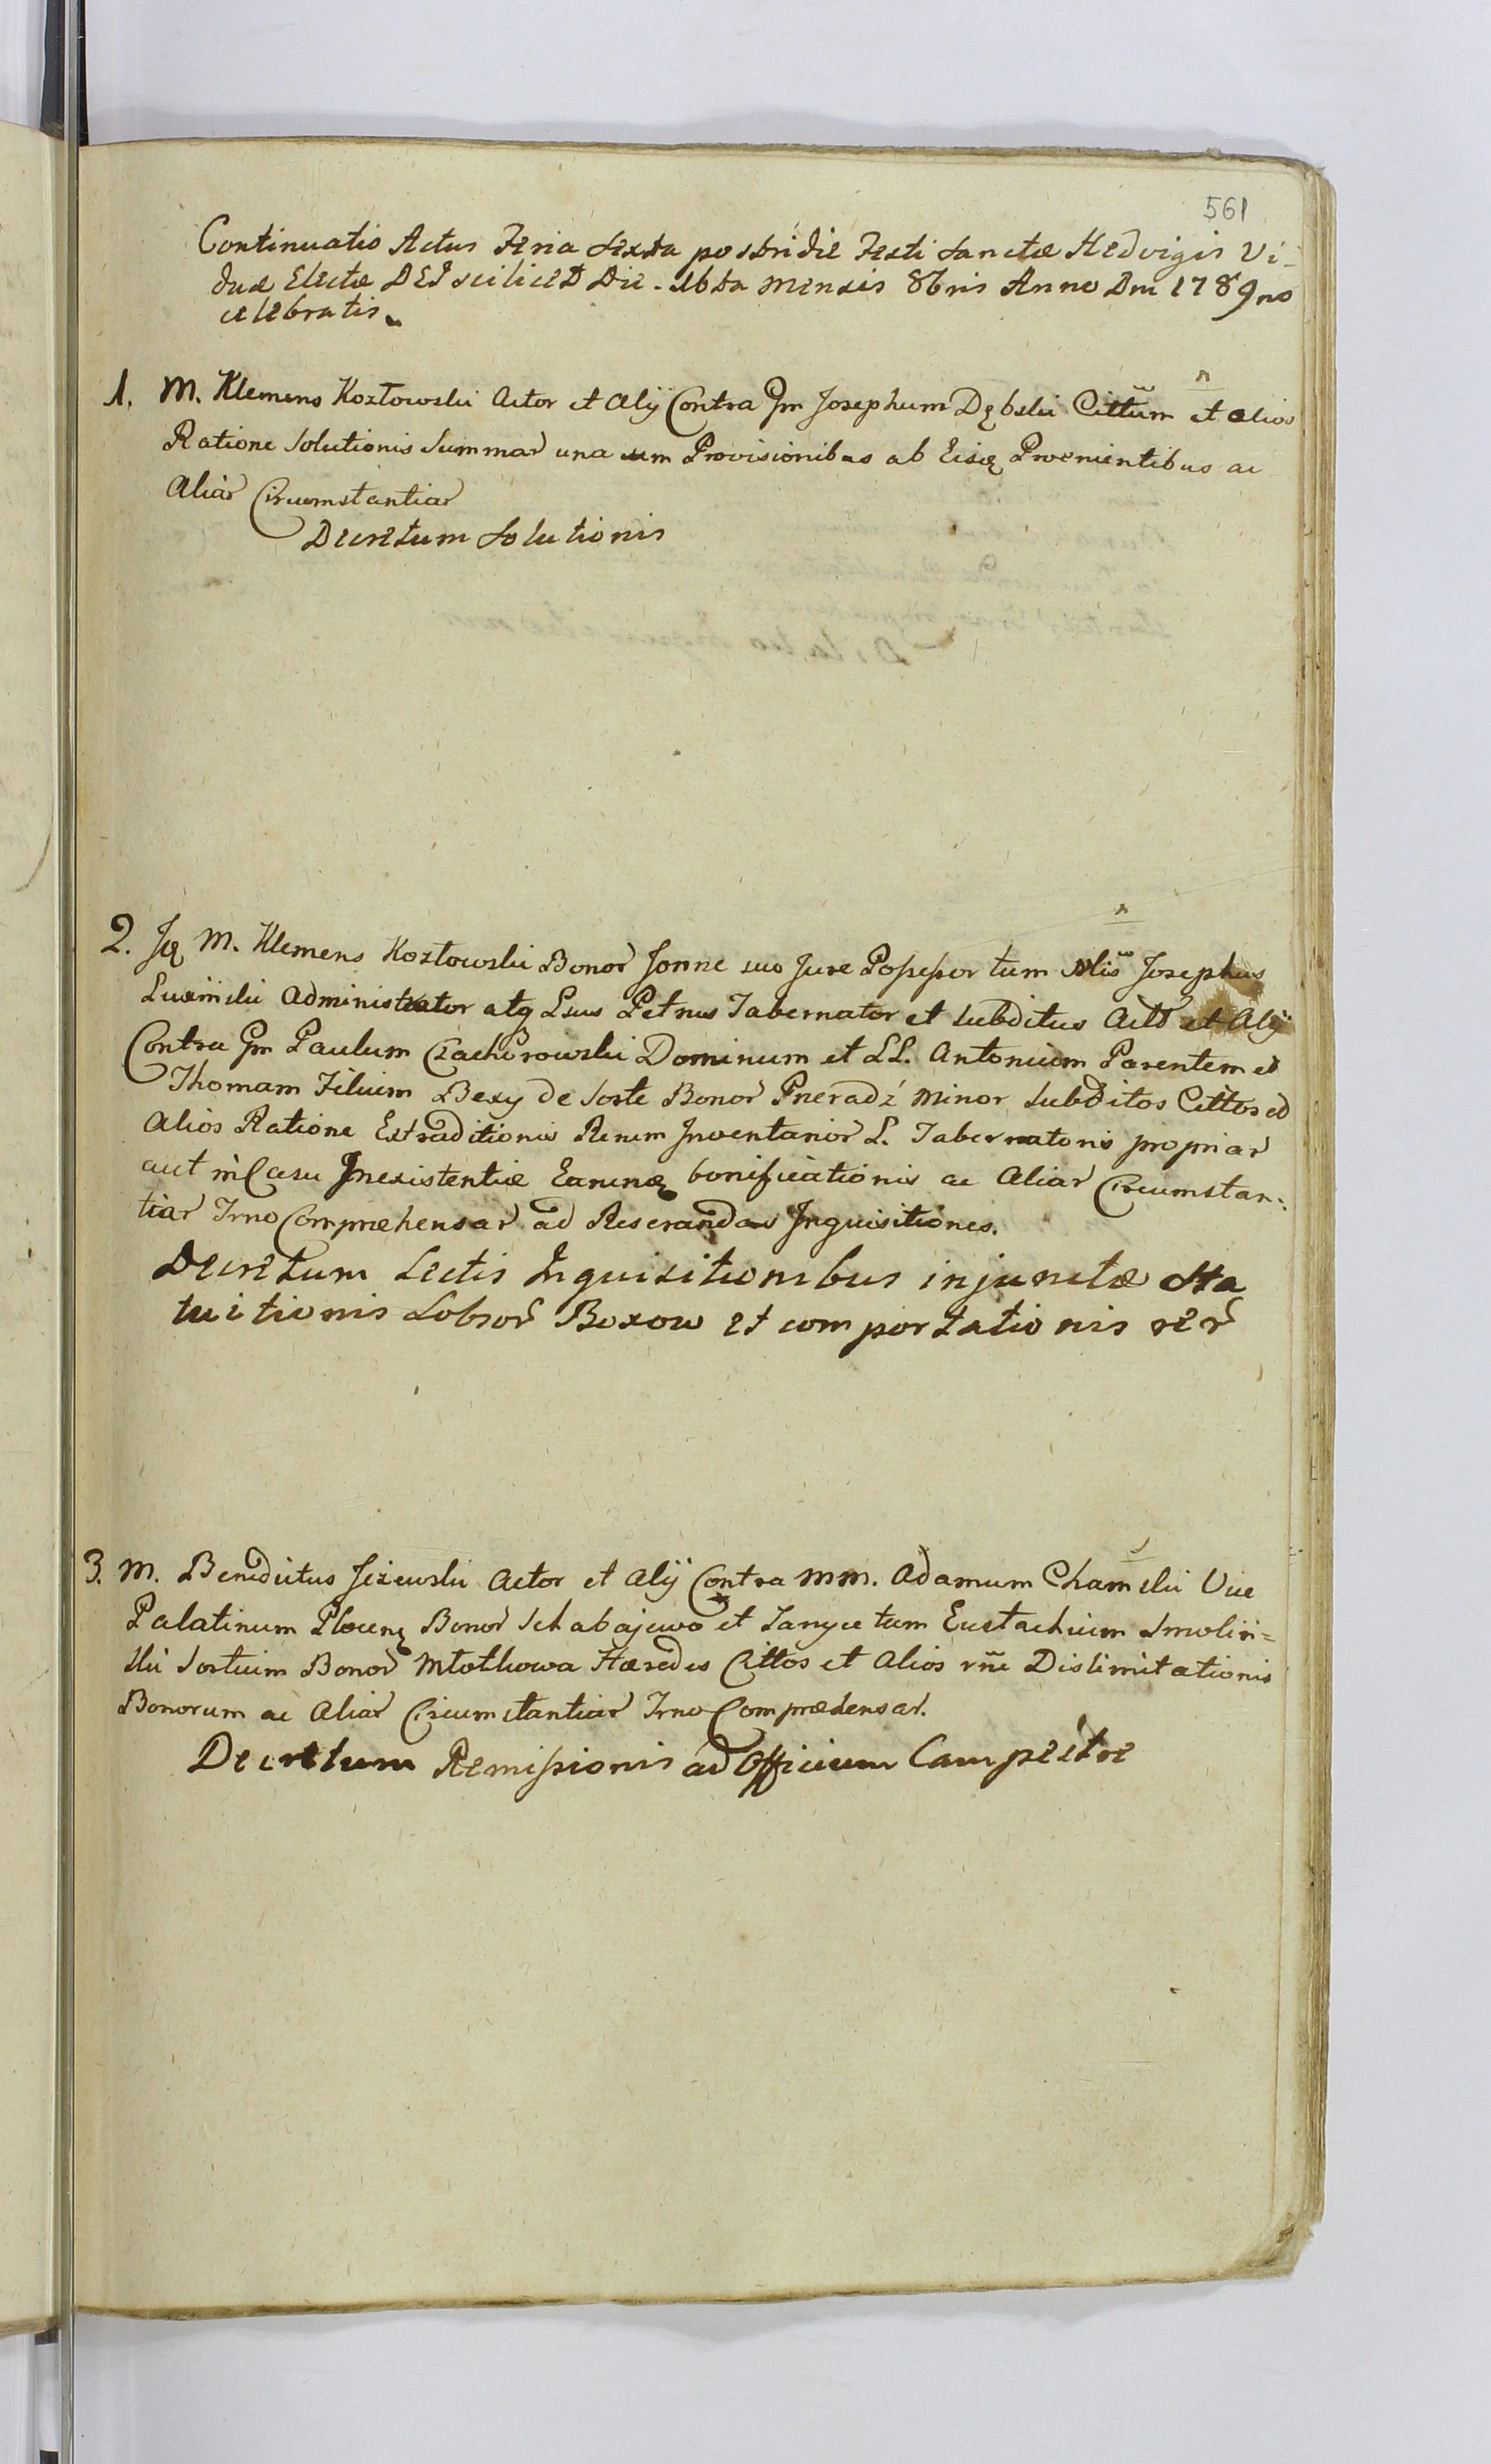 561
Continuatio Actus Feria Sexta postridie Festi Sanctæ Hedvigis Vi-
duæ Electæ DEI scilicet Die 16ta Mensis 8bris Anno Dni 1789no
celebratis.
1. M. Klemens Kozłowski Actor et Alÿ Contra Gm Josephum Dębski Cittum et alios
Ratione Solutionis Summar una cum Provisionibus ab Eisq Provenientibus ac
Aliar Circumstantiar
Decretum Solutionis
2. Jq M. Klemens Kozłowski Bonor Jonne suo Jure Possessor tum Nlis Josephus
Administrator atq Lsus Petrus Tabernator et Subditus Act et Alÿ
Contra Gm Paulum Czachorowski Dominum et LL. Antonium Parentem et
Thomam Filium Bexy de Sorte Bonor Pneradz Minor Subditos Cittos et
Alios Ratione Extraditionis Rerum Inventarior L. Tabernatoris propriar
aut in Casu Inexistentiæ Earumq bonificationis ac Aliar Circumstan-
tiar Trno Compræhensar ad Reserandas Inquisitiones.
Decretum Lectis Inquisitionibus injunctæ Sta
tuitionis Lobsor Boxow et comportationis rer
3. M. Benedictus Jeżewski Actor et Alÿ Contra MM. Adamum Chamski Vice
Palatinum Plocens Bonor Schabajewo et tum Eustachium Smoliń=
ski Sortium Bonor Młotkowa Hæredes Cittos et Alios rñe Dislimitationis
Bonorum ac Aliar Circumstantiar Trno Compræhensar.
Decretum Remissionis ad Officium Campestre